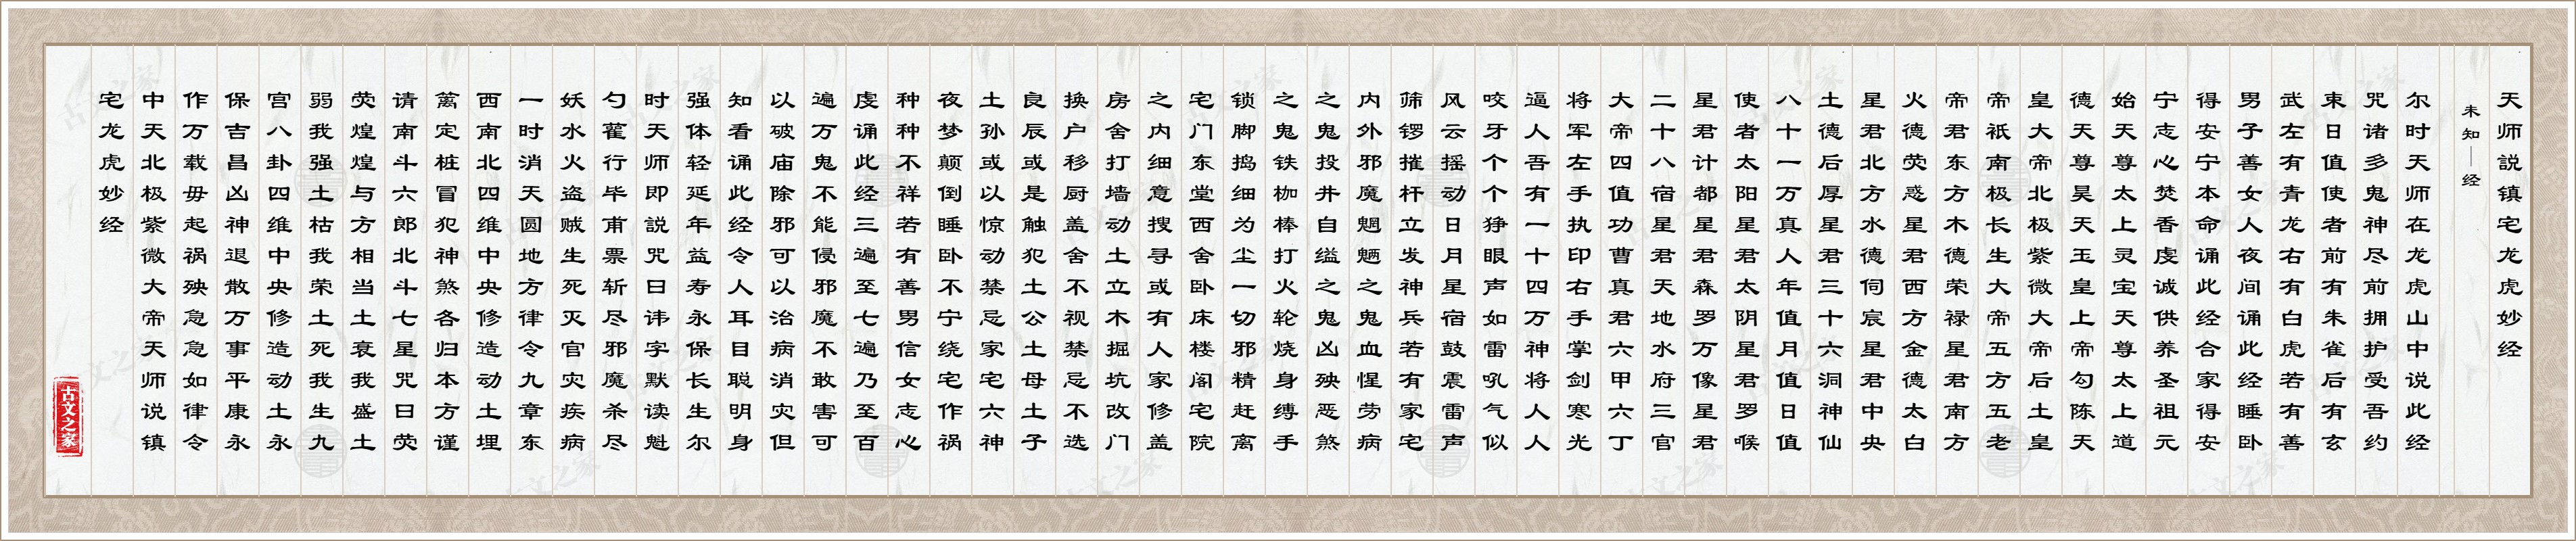 天师説镇宅龙虎妙经
未知—经
尔时天师在龙虎山中说此经
咒诸多鬼神尽前拥护受吾约
束日值使者前有朱雀后有玄
武左有青龙右有白虎若有善
男子善女人夜间诵此经睡卧
得安宁本命诵此经合家得安
宁志心焚香虔诚供养圣祖元
始天尊太上灵宝天尊太上道
德天尊昊天玉皇上帝勾陈天
皇大帝北极紫微大帝后土皇
帝祇南极长生大帝五方五老
帝君东方木德荣禄星君南方
火德荧惑星君西方金德太白
星君北方水德伺宸星君中央
土德后厚星君三十六洞神仙
八十一万真人年值月值日值
使者太阳星君太阴星君罗喉
星君计都星君森罗万像星君
二十八宿星君天地水府三官
大帝四值功曹真君六甲六丁
将军左手执印右手掌剑寒光
逼人吾有一十四万神将人人
咬牙个个狰眼声如雷吼气似
风云摇动日月星宿鼓震雷声
筛锣摧杆立发神兵若有家宅
内外邪魔魍魉之鬼血惺劳病
之鬼投井自缢之鬼凶殃恶煞
之鬼铁枷棒打火轮烧身缚手
锁脚捣细为尘一切邪精赶离
宅门东堂西舍卧床楼阁宅院
之内细意搜寻或有人家修盖
房舍打墙动土立木掘坑改门
换户移厨盖舍不视禁忌不选
良辰或是触犯土公土母土子
土孙或以惊动禁忌家宅六神
夜梦颠倒睡卧不宁绕宅作祸
种种不祥若有善男信女志心
虔诵此经三遍至七遍乃至百
遍万鬼不能侵邪魔不敢害可
以破庙除邪可以治病消灾但
知看诵此经令人耳目聪明身
强体轻延年益寿永保长生尔
时天师即説咒曰讳字默读魁
勺雚行毕甫票斩尽邪魔杀尽
妖水火盗贼生死灭官灾疾病
一时消天圆地方律令九章东
西南北四维中央修造动土埋
篱定桩冒犯神煞各归本方谨
请南斗六郎北斗七星咒曰荧
荧煌煌与方相当土衰我盛土
弱我强土枯我荣土死我生九
宫八卦四维中央修造动土永
保吉昌凶神退散万事平康永
作万载毋起祸殃急急如律令
中天北极紫微大帝天师说镇
宅龙虎妙经
古文之家